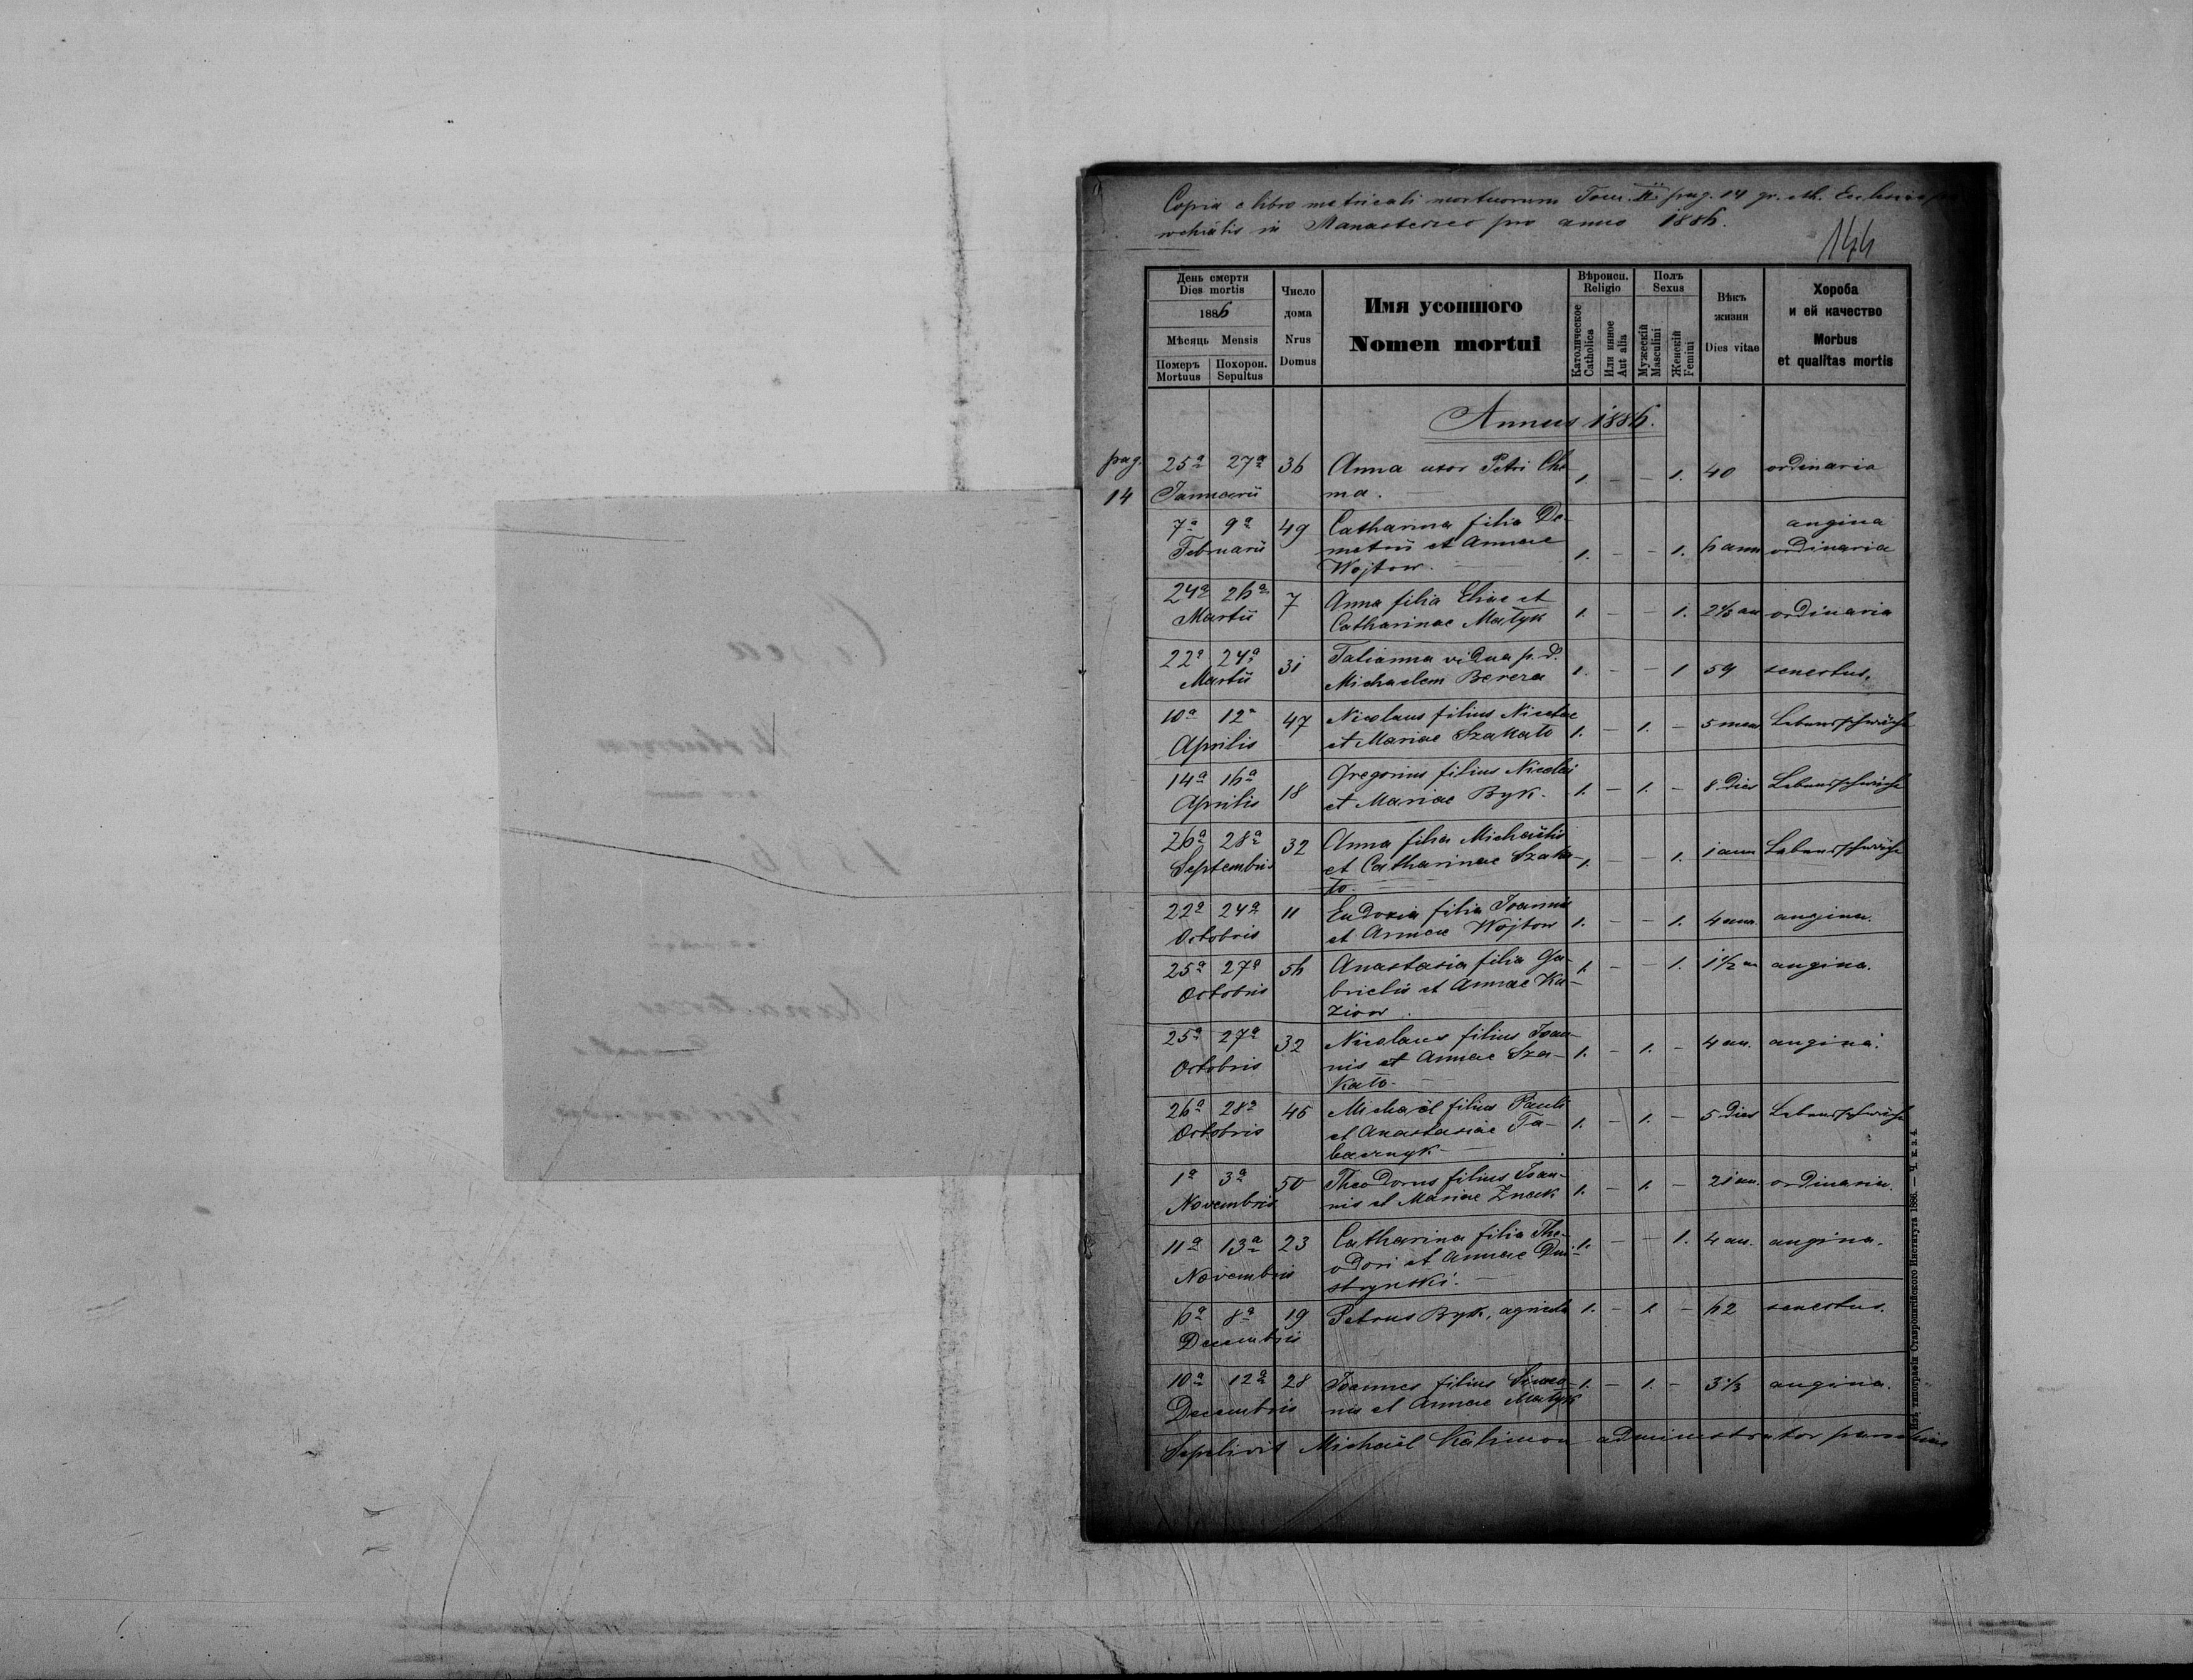 Copia e libro metricali mortuorum Tom. II pag. 14 gr. cth. Ecclesiae pa
rochialis in Manasterec pro anno 1886.
144
День смерти
Dies mortis
1886
Мѣсяць Mensis
Померъ
Mortuus
Похорон.
Sepultus
Число
дома
Nrus
Domus
Имя усопшого
Nomen mortui
Вѣроисп.
Religio
Католическое
Catholica
Или инное
Aut alia
Полъ
Sexus
Мужескій
Masculini
Женскій
Femini
Вѣкъ
жизни
Dies vitae
Хороба
и ей качество
Morbus
et qualitas mortis
Annus 1886.
pag. 25ª 27ª 36 Anna uxor Petri Cho 1. – – 1. 40 ordinaria
14 Januarii ma.
7ª 9ª 49 Catharina filia De- angina
Februarii metrii et Annae 1. – – 1. 6 ann ordinaria
Wojtow.
24ª 26ª 7 Anna filia Eliae et
Martii Catharinae Matyk 1. – – 1. 2⅓ an ordinaria
22ª 24ª 31 Tatianna vidua p. d.
Martii Michaelem Bereza 1. – – 1 59 senectus.
10ª 12ª 47 Nicolaus filius
Aprilis et Mariae Szakato 1. – 1. – 5 mens Lebensschwäche
14ª 16ª 18 Gregorius filius Nicolai
Aprilis et Mariae Byk. 1. – 1. – 8 dies Lebensschwäche
26ª 28ª 32 Anna filia Michaëlis
Septembris et Catharinae Szaka- 1. – – 1. 1 ann Lebensschwäche
to.
22ª 24ª 11 Eudoxia filia Joannis
Octobris et Annae Wojtow 1. – – 1. 4 ann. angina.
25ª 27ª 56 Anastasia filia Ga- 1. – – 1. 1½ an angina.
Octobris brielis et Annae Ka-
ziow.
25ª 27ª 32 Nicolaus filius Joan-
Octobris nis et Annae Sza- 1. – 1. – 4 an. angina.
kato.
26ª 28ª 45 Michaël filius Pauli
Octobris et Anastasiae Ta- 1. – 1. – 5 dies Lebensschwäche
1ª 3ª 50 Theodorus filius Joan-
Novembris nis et Mariae Znack 1. – 1. – 21 an. ordinaria.
11ª 13ª 23 Catharina filia The- 1. – – 1. 4 an. angina.
Novembris odori et Annae
6ª 8ª 19 Petrus Byk, agricola 1. – 1 – 62 senectus.
Decembris
10ª 12ª 28 Joannes filius Simeo- 1. – 1. – 3⅓ angina.
Decembris nis et Annae Matyk
Sepelivit Michaël Kalimon administrator parochiae
Изъ типографіи Ставропигійского Института 1886. — Ч. к. а. 4.